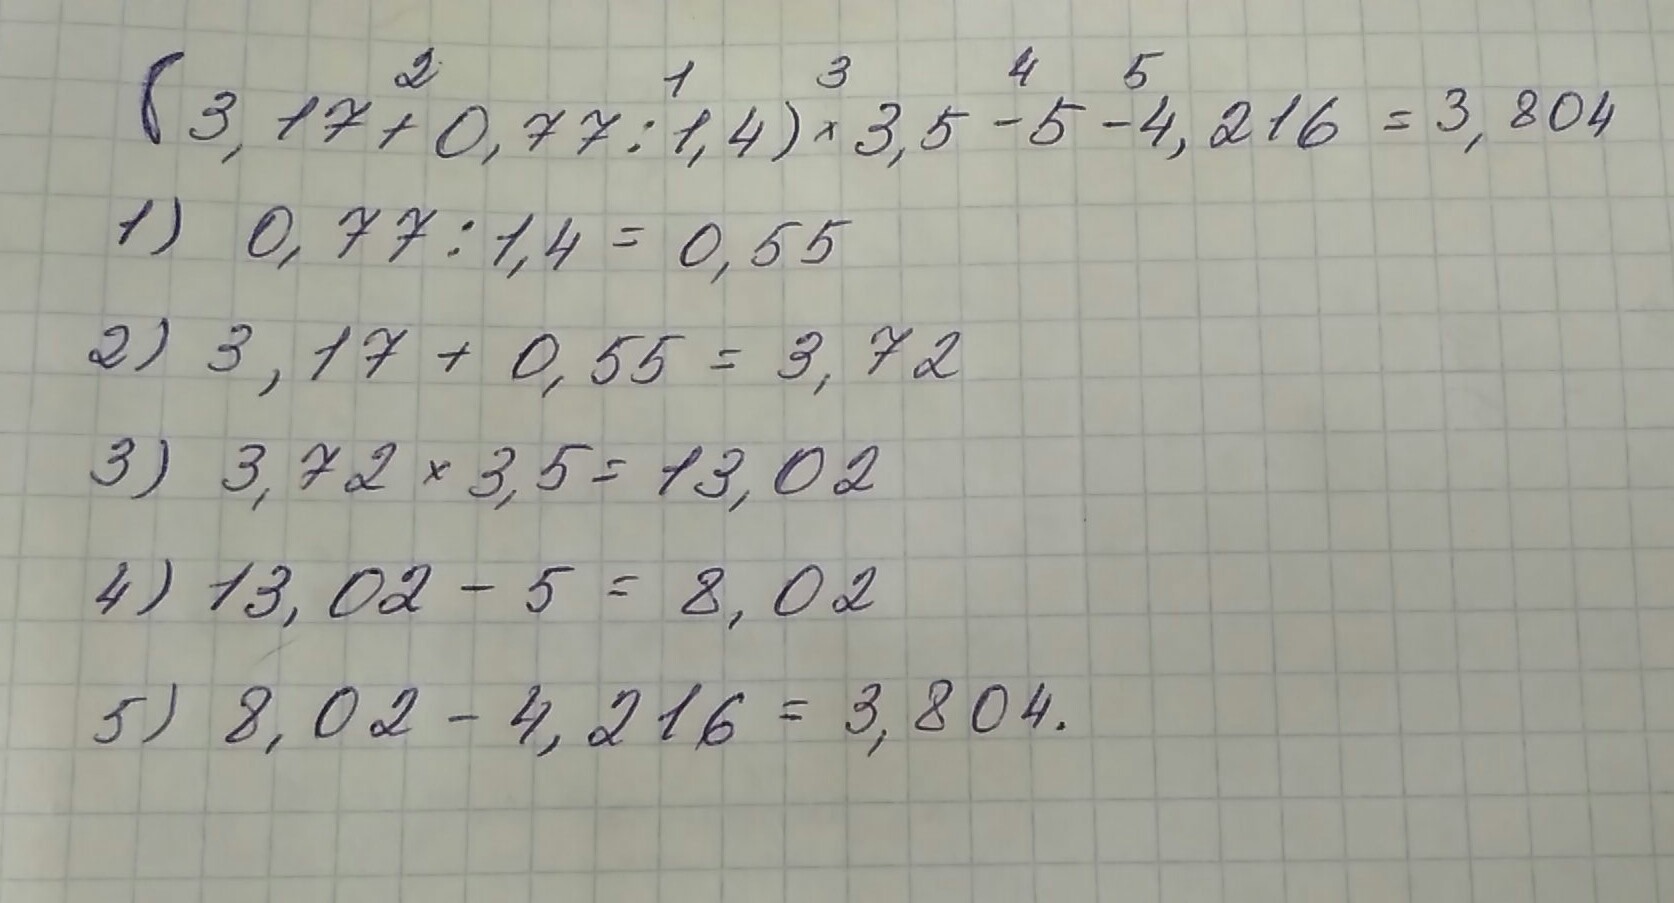 2 1 3 4 5
(3,17+0,77:1,4)×3,5-5-4,216=3,804
1) 0,77:1,4=0,55
2) 3,17+0,55=3,72
3) 3,72×3,5=13,02
4) 13,02-5=8,02
5) 8,02-4,216=3,804.